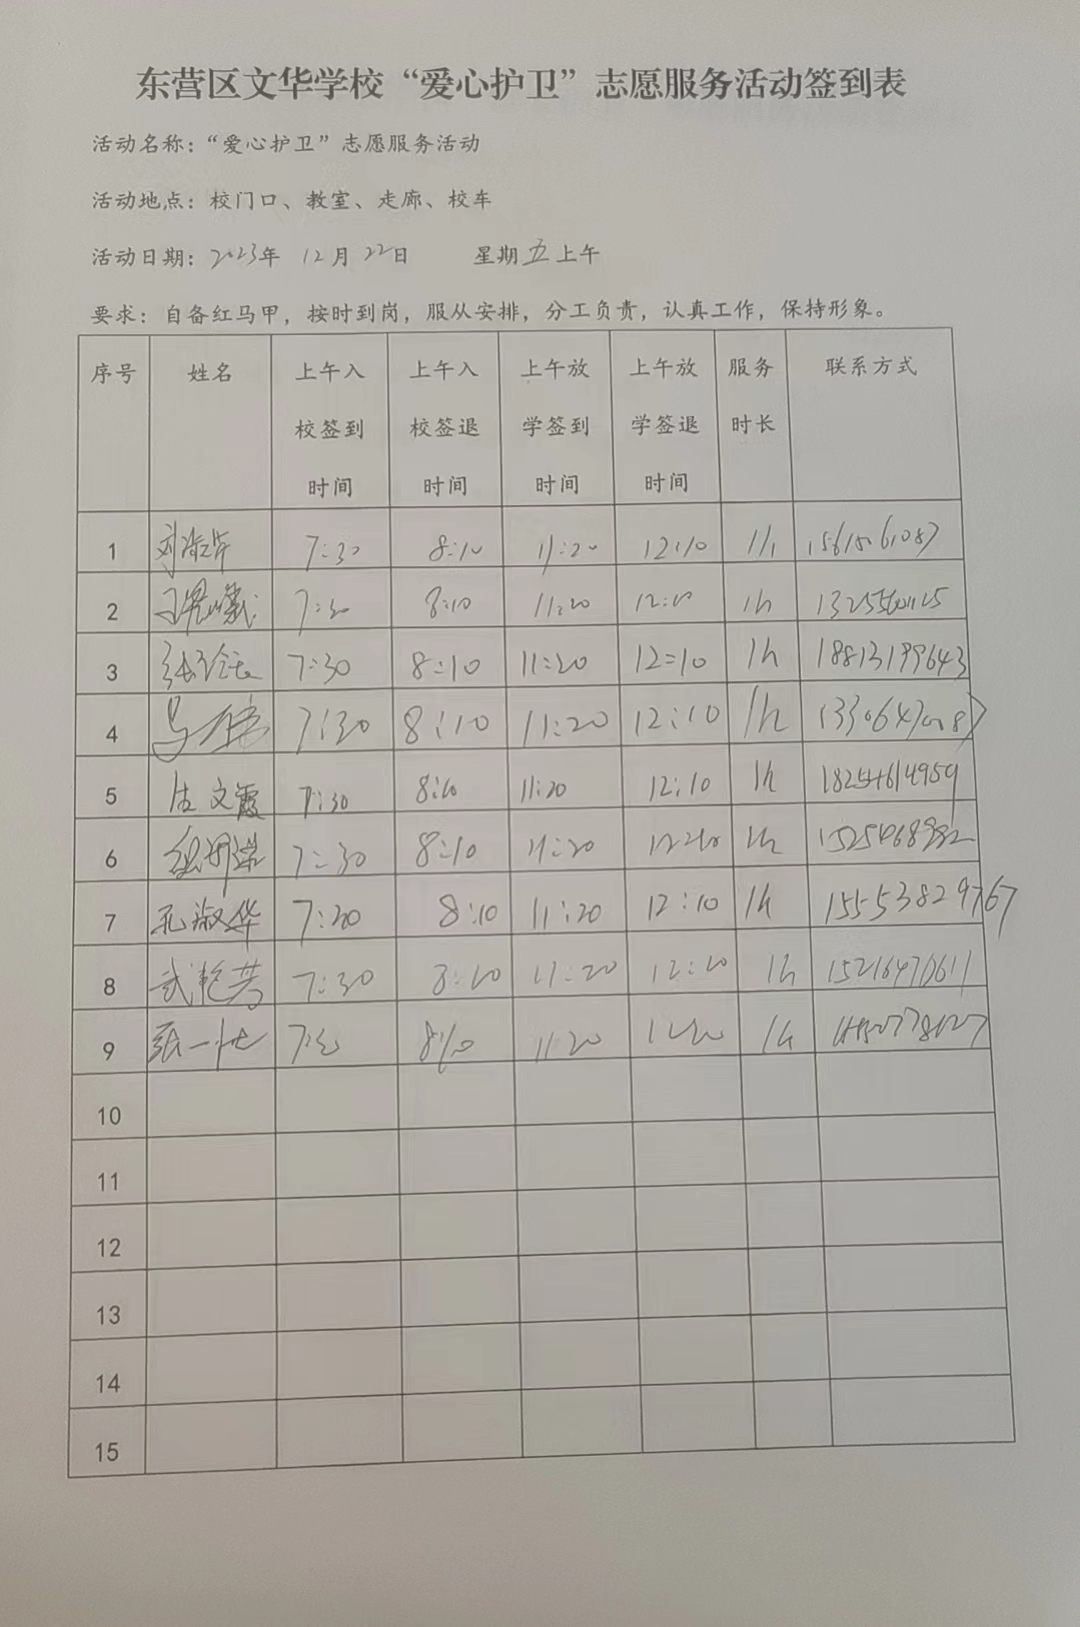 东营区文华学校“爱心护卫”志愿服务活动签到表
活动名称：“爱心护卫”志愿服务活动
活动地点：校门口、教室、走廊、校车
活动日期：2023年 12月 22日 星期五上午
要求：自备红马甲，按时到岗，服从安排，分工负责，认真工作，保持形象。
序号 姓名 上午入校签到时间 上午入校签退时间 上午放学签到时间 上午放学签退时间 服务时长 联系方式
1 7:30 8:10 11:20 12:10 1h
2 7:30 8:10 11:20 12:10 1h
3 7:30 8:10 11:20 12:10 1h 18813199643
4 7:30 8:10 11:20 12:10 1h
5 文霞 7:30 8:10 11:20 12:10 1h 18254614959
6 7:30 8:10 11:20 1h
7 孔淑华 7:30 8:10 11:20 12:10 1h 15553829767
8 7:30 11:20 1h
9 张一 11:20 1h
10
11
12
13
14
15